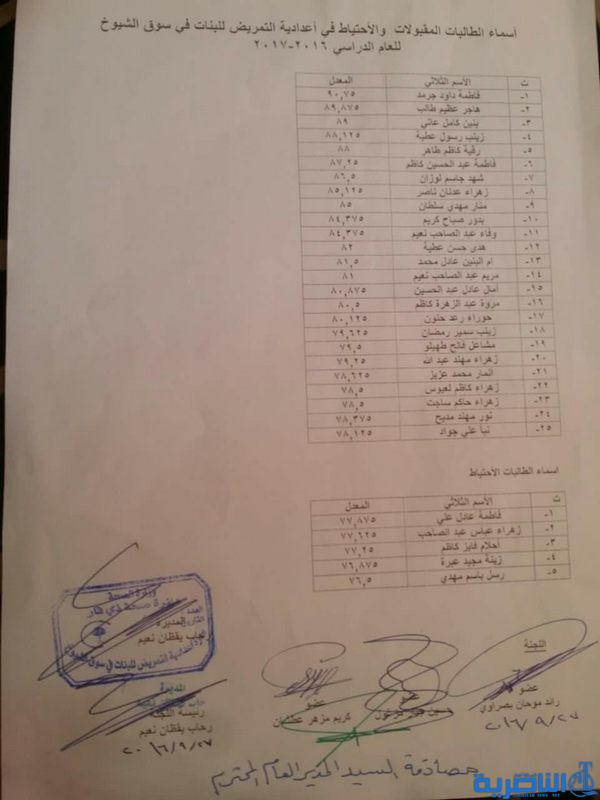 أسماء الطالبات المقبولات والأحتياط في أعدادية التمريض للبنات في سوق الشيوخ
للعام الدراسي ٢٠١٦-٢٠١٧
ت الأسم الثلاثي المعدل
١- فاطمة داود جرمد ٩٠,٧٥
٢- هاجر عظيم طالب ٨٩,٨٧٥
٣- بنين كامل عاتي ٨٩
٤- زينب رسول عطية ٨٨,١٢٥
٥- رقية كاظم طاهر ٨٨
٦- فاطمة عبد الحسين كاظم ٨٧,٢٥
٧- شهد جاسم لوزان ٨٦,٥
٨- زهراء عدنان ناصر ٨٥,١٢٥
٩- منار مهدي سلطان ٨٥
١٠- بدور صباح كريم ٨٤,٣٧٥
١١- وفاء عبد الصاحب نعيم ٨٤,٣٧٥
١٢- هدى حسن عطية ٨٢
١٣- ام البنين عادل محمد ٨١,٥
١٤- مريم عبد الصاحب نعيم ٨١
١٥- أمال عادل عبد الحسين ٨٠,٨٧٥
١٦- مروة عبد الزهرة كاظم ٨٠,٥
١٧- حوراء رعد حنون ٨٠,١٢٥
١٨- زينب سمير رمضان ٧٩,٦٢٥
١٩- مشاعل فالح طهينو ٧٩,٥
٢٠- زهراء مهند عبد الله ٧٩,٢٥
٢١- انمار محمد عزيز ٧٨,٦٢٥
٢٢- زهراء كاظم لعيوس ٧٨,٥
٢٣- زهراء حاكم ساجت ٧٨,٥
٢٤- نور مهند مديح ٧٨,٣٧٥
٢٥- نبأ علي جواد ٧٨,١٢٥
اسماء الطالبات الأحتياط
ت الأسم الثلاثي المعدل
١- فاطمة عادل علي ٧٧,٨٧٥
٢- زهراء عباس عبد الصاحب ٧٧,٦٢٥
٣- أحلام فايز كاظم ٧٧,٢٥
٤- زينة مجيد عبرة ٧٦,٨٧٥
٥- رسل باسم مهدي ٧٦,٥
وزارة الصحة
دائرة صحة ذي قار
العدد
التاريخ
المديرة
رحاب يقظان نعيم
اعدادية التمريض للبنات في سوق الشيوخ
اللجنة
عضو
رائد موحان بصراوي
٢٠١٦/٩/٢٧
عضو
عضو
كريم مزهر
المديرة
رئيسة اللجنة
رحاب يقظان نعيم
٢٠١٦/٩/٢٧
مصادقة السيد المدير العام المحترم
الناصرية